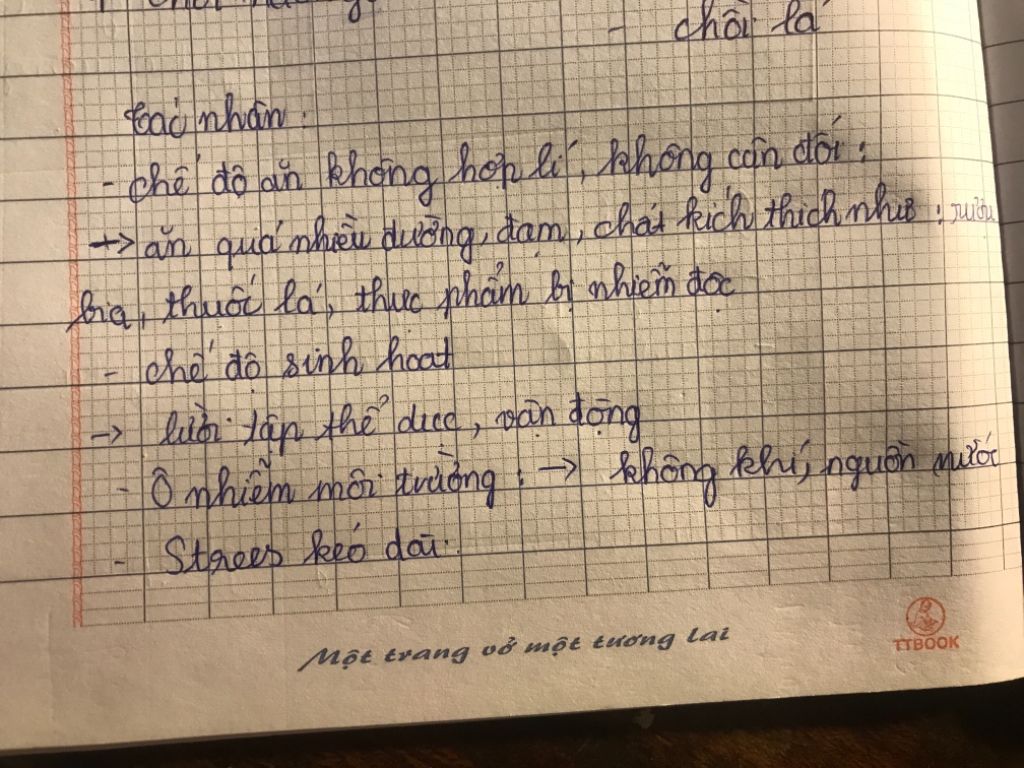 - chồi lá
tác nhân:
- chế độ ăn không hợp lí, không cân đối:
→ ăn quá nhiều đường, đạm, chất kích thích như: rượu
bia, thuốc lá, thực phẩm bị nhiễm độc
- chế độ sinh hoạt
→ lười tập thể dục, vận động
- Ô nhiễm môi trường: → không khí, nguồn nước
- Strees kéo dài.
Một trang vở một tương lai
TTBOOK